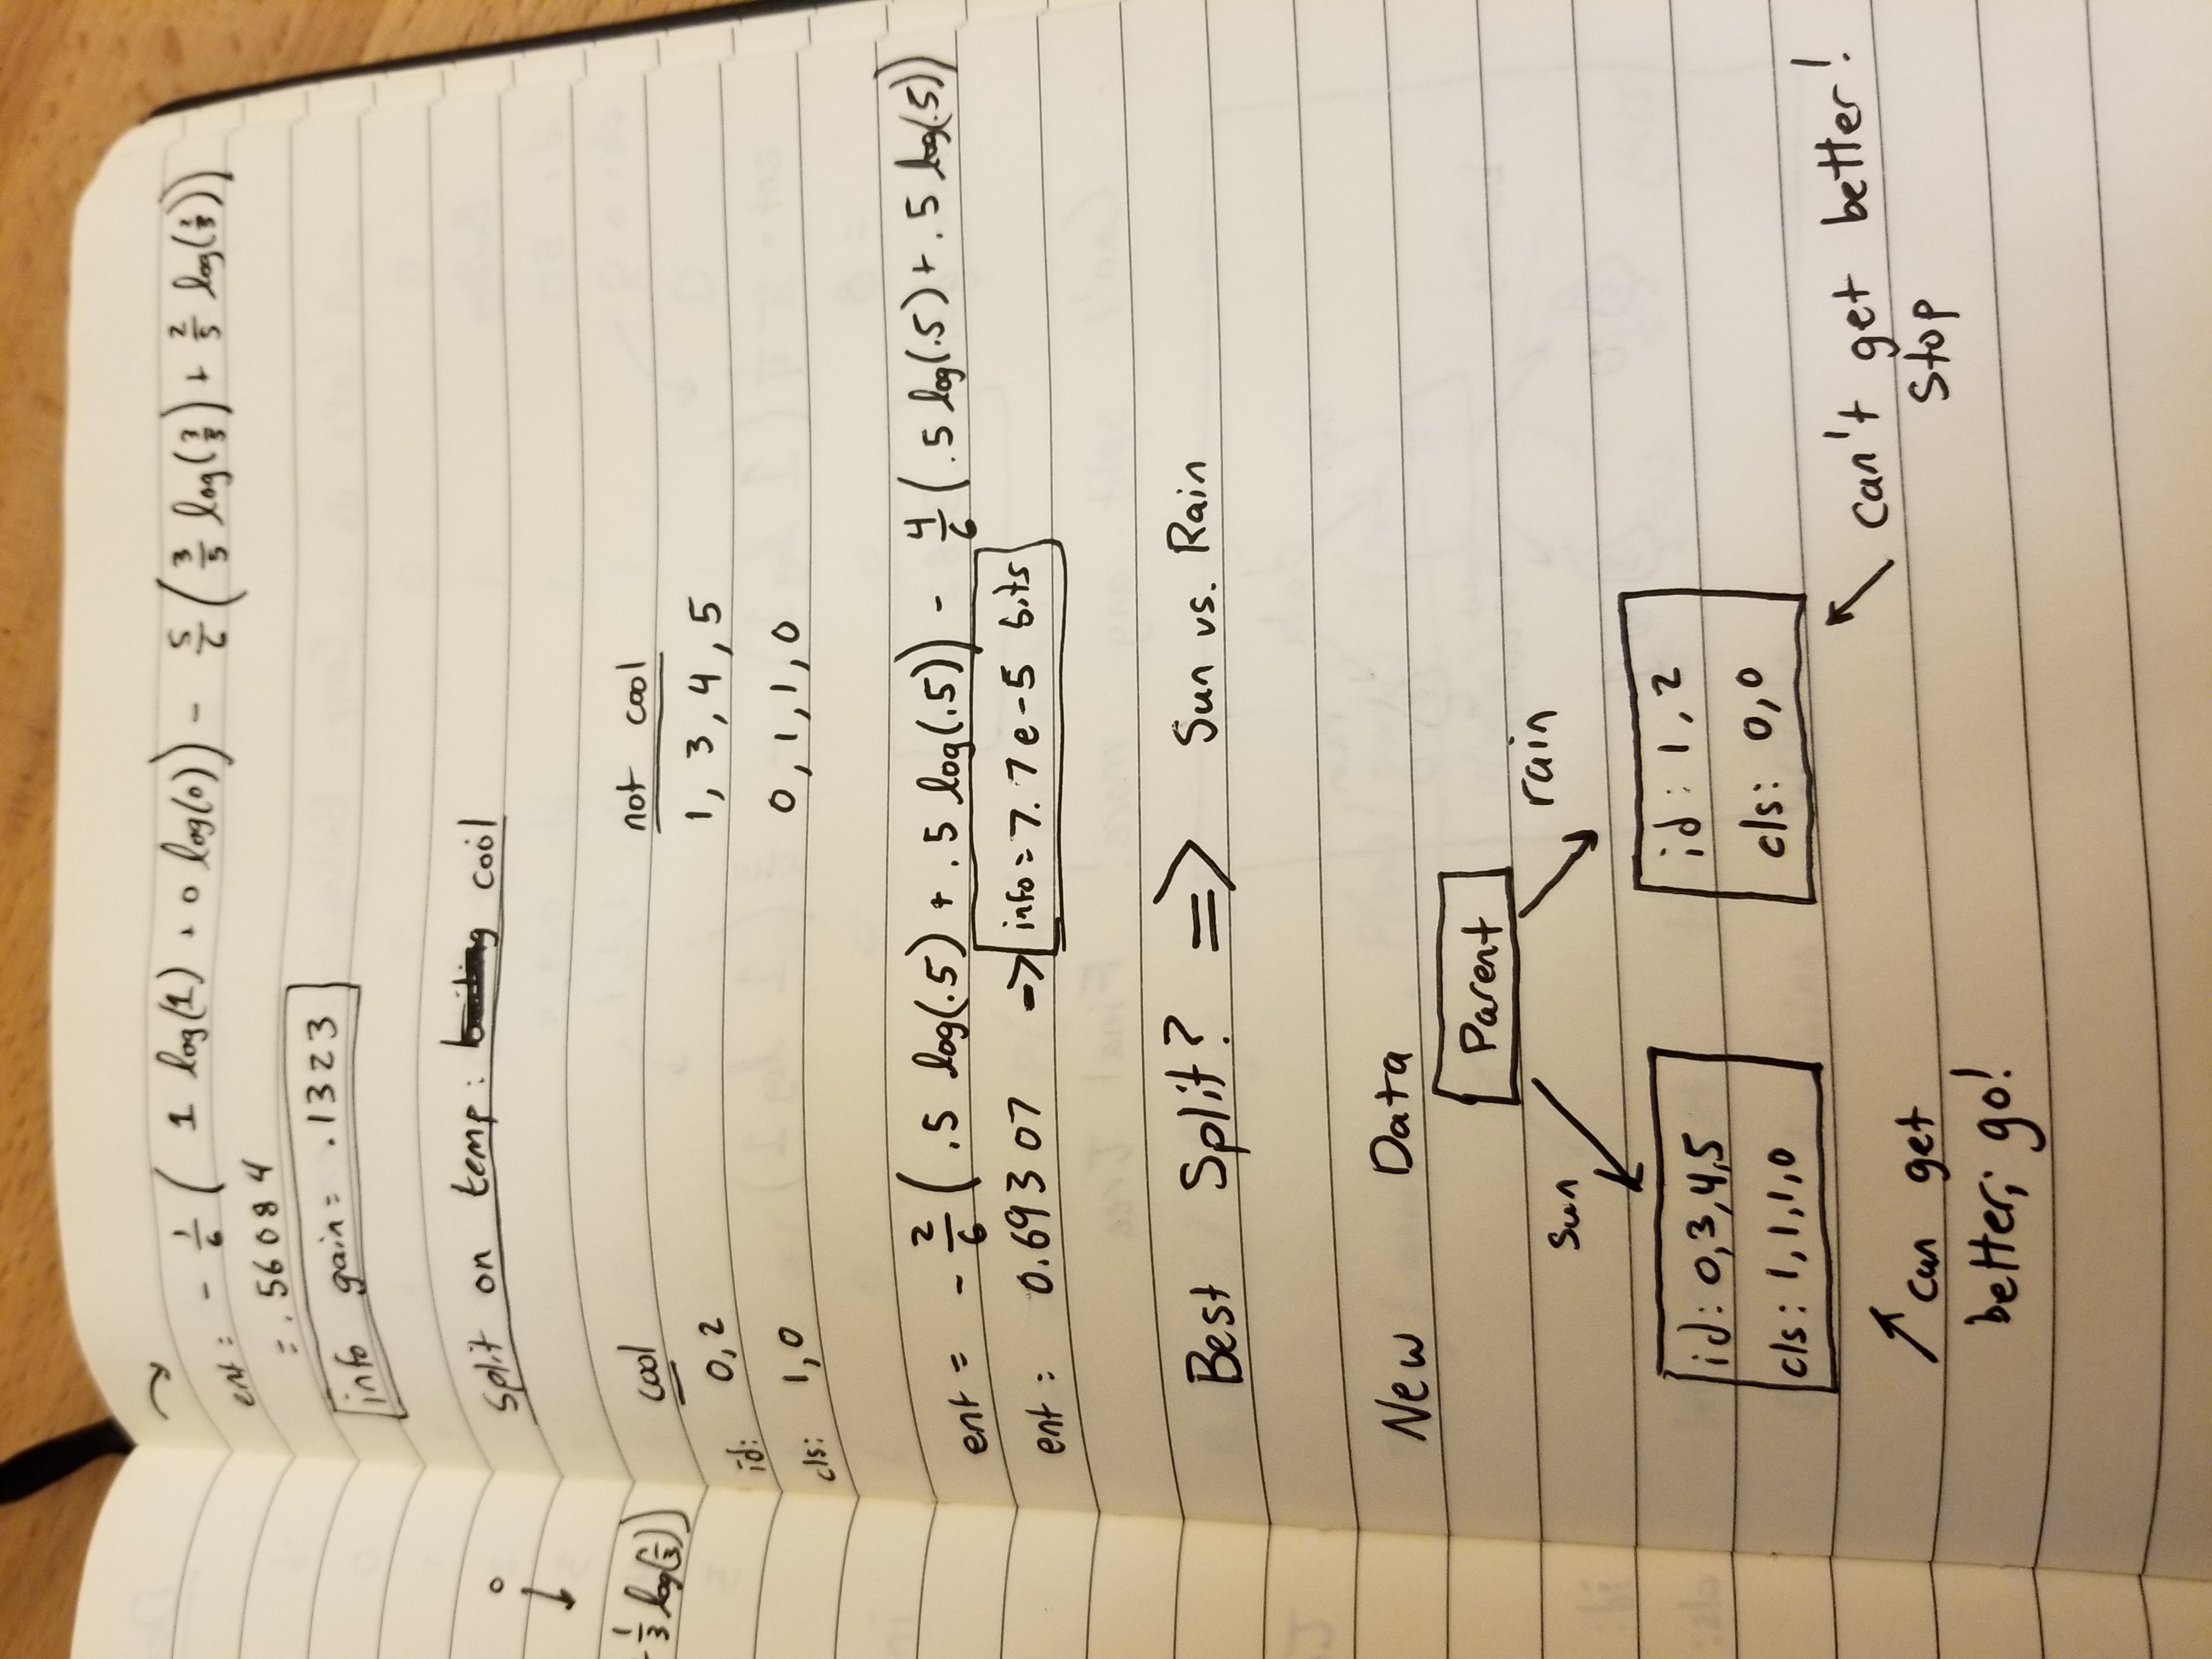 ent = - 1/6 ( 1 log(1) + 0 log(0)) - 5/6 ( 3/5 log(3/5) + 2/5 log(2/5))
= .56084
info gain = .1323
split on temp: cool
0
1/3 log(1/3))
cool not cool
id: 0,2 1, 3, 4, 5
cls: 1,0 0, 1, 1, 0
ent = - 2/6 ( .5 log(.5) + .5 log(.5)) - 4/6 ( .5 log(.5) + .5 log(.5))
ent = 0.69307 => info = 7.7e-5 bits
Best Split? => Sun vs. Rain
New Data
Parent
sun rain
id: 0,3,4,5 id: 1,2
cls: 1,1,1,0 cls: 0,0
can get better; go!
can't get better!
stop